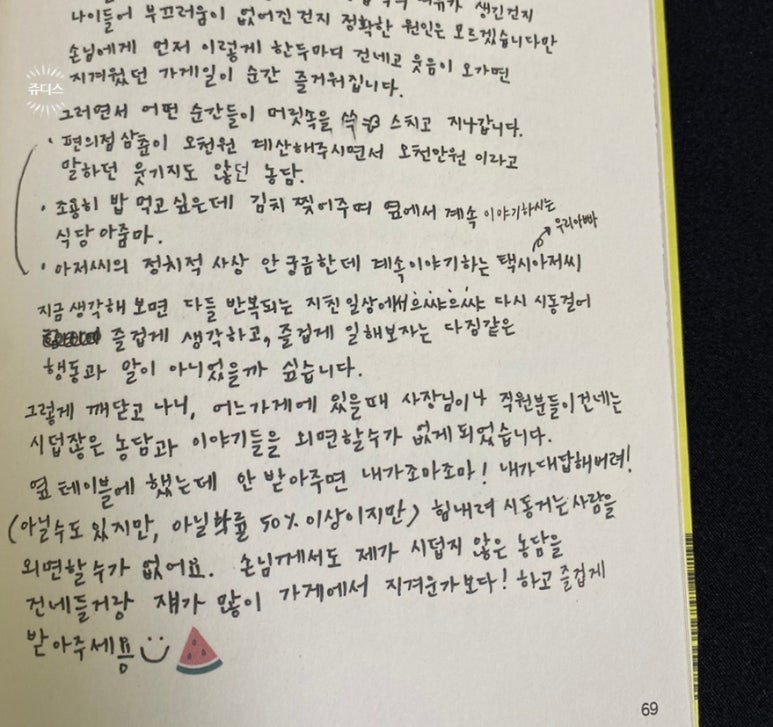 생긴건지
나이들어 부끄러움이 없어진건지 정확한 원인은 모르겠습니다만
손님에게 먼저 이렇게 한두마디 건네고 웃음이 오가면
지겨웠던 가게일이 순간 즐거워집니다.
쥬디스
그러면서 어떤 순간들이 머릿속을 쓱 스치고 지나갑니다.
· 편의점 삼춘이 오천원 계산해주시면서 오천만원 이라고
말하던 웃기지도 않던 농담.
· 조용히 밥 먹고 싶은데 김치 찢어주며 옆에서 계속 이야기하시는
식당 아줌마.
우리아빠
· 아저씨의 정치적 사상 안 궁금한데 계속 이야기하는 택시아저씨
지금 생각해 보면 다들 반복되는 지친 일상에서 으쌰으쌰 다시 시동걸어
즐겁게 생각하고, 즐겁게 일해보자는 다짐같은
행동과 말이 아니었을까 싶습니다.
그렇게 깨닫고 나니, 어느가게에 있을때 사장님이나 직원분들이 건네는
시덥잖은 농담과 이야기들을 외면할수가 없게 되었습니다.
옆 테이블에 했는데 안 받아주면 내가조마조마! 내가대답해버려!
(아닐수도 있지만, 아닐확률 50% 이상이지만) 힘내려 시동거는사람을
외면할수가 없어요. 손님께서도 제가 시덥지 않은 농담을
건네들거랑 쟤가 많이 가게에서 지겨운가보다! 하고 즐겁게
받아주세용
69